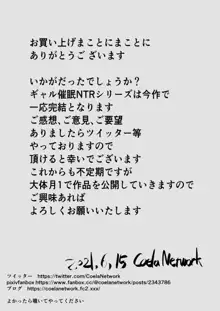 お買い上げまことにまことに
ありがとうございます
いかがだったでしょうか?
ギャル催眠NTRシリーズは今作で
一応完結となります
ご感想、ご意見、ご要望
ありましたらツイッター等
やっておりますので
頂けると幸いでございます
これからも不定期ですが
大体月1で作品を公開していきますので
ご興味あれば
よろしくお願いいたします
2021,6,15 Coela Network
ツイッター https://twitter.com/CoelaNetwork
pixivfanbox https://www.fanbox.cc/@coelanetwork/posts/2343786
ブログ https://coelanetwork.fc2.xxx/
よかったら覗いてやってください